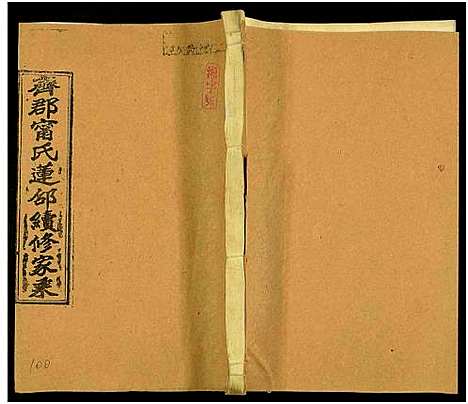 齊郡甯氏蓮邵續修家乘
100